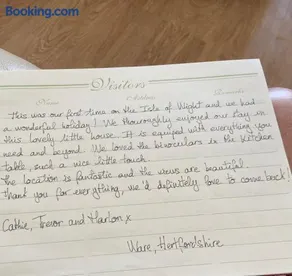 Booking.com
Visitors
Name Address Remarks
This was our first time on the Isle of Wight and we had
a wonderful holiday! We thouroughly enjoyed our stay in
this lovely little house. It is equiped with everything you
need and beyond. We loved the binoculars in the kitchen
table, such a nice little touch.
The location is fantastic and the views are beautiful.
Thank you for everything, we'd definitely love to come back!
Cathie, Trevor and Harlon x
Ware, Hertfordshire